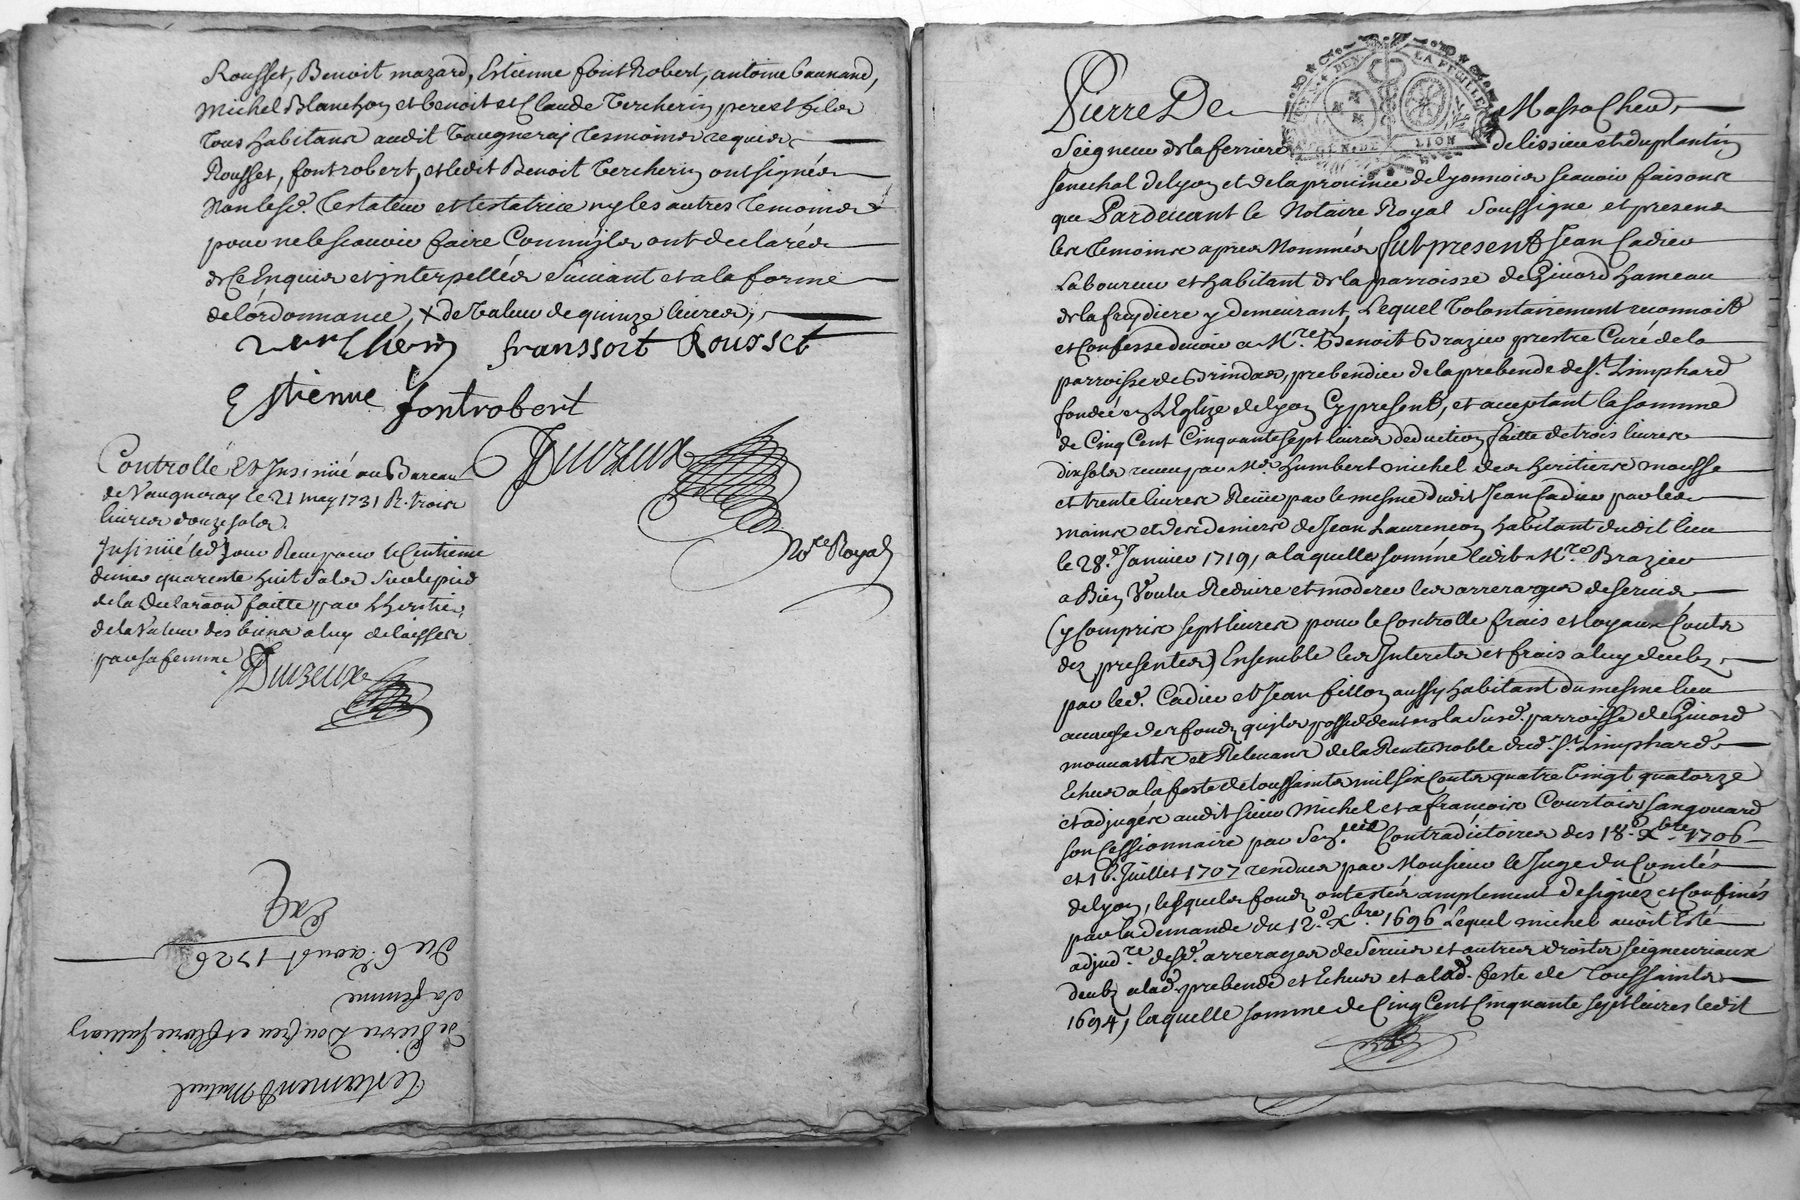 Rousset, Benoit mazard, Estienne font Robert, antoine
Michel Blanchon et benoit et Claude Vercherin pere et fils
tous habitans audit Vaugneray tesmoins requis
Rousset, fontrobert, et ledit Benoit Vercherin ont signés
Non lesd. Testateur et testatrice ny les autres temoins
pour ne le scavoir faire Comm'ils ont declarés
de Ce Enquis et interpellés Suivant et a la forme
de l'ordonnance, + de valeur de quinze livres,
Verchery franssoit Rousset
Estienne fontrobert
Duzeux
No.re Royal
Controllé Et Insinüé au Bureau
de Vaugneray le 21 may 1731 R. trois
livres douze sols.
Insinüé led. Jour Reçu pour le Centieme
denier quarente huit Sols Sur le pied
de la declaraõn faitte par l'heritier
de la Valeur des biens a luy delaissés
par sa femme
Duzeux
Testament Mutuel
de Pierre et
sa femme
Du 6.e aoust 1726
Exp
Pierre De Masso Chevr
Seigneur de la ferriere de lissieu et du plantin
GEN. DE LION
senechal de lyon et de la province de lyonnois scavoir faisons
que Pardevant le Notaire Royal Soussigné et presens
les temoins apres Nommés fut present Jean Cadier
Laboureur et habitant de la parroisse de Givord hameau
de la freydiere y demeurant, Lequel Volontairement reconnoit
et Confesse devoir a M.re Benoit Brazier prestre Curé de la
parroisse de Brindas, prebendier de la prebende de S.t Limphard
fondée en L'Eglize de lyon Cy present, et acceptant la somme
de Cinq Cent Cinquante sept livres deduction faitte de trois livres
dix sols receu par M.r humbert michel des heritiers mousse
et trente livres Reçüe par le mesme dudit Jean Cadier par les
mains et des deniers de Jean Laurencon habitant dudit lieu
le 28.e Janvier 1719, a laquelle somme ledit M.re Brazier
a Bien Voulu Reduire et moderer les arrerages de servis
(y Compris sept livres pour le Controlle frais et loyaux Couts
dez presentes) Ensemble les Interets et frais a luy deubz
par led. Cadier et Jean fillon aussy habitant du mesme lieu
a cause des fondz qu'ils possedent en la Susd. parroisse de Givord
mouvants et Relevans de la Rente noble dud. S.t Limphard
Echus a la feste de toussaints mil six Cents quatre Vingt quatorze
et adjugés audit sieur Michel et a francois Courtois Sangouard
son Cessionnaire par Sen.ces Contradictoires des 18.e Xbre 1706
et 16. Juillet 1707 rendues par Monsieur le Juge du Comté
de lyon, lesquels fondz ont estés amplement designéz et Confinés
par la demande du 12.e Xbre 1696 Lequel michel avoit Esté
adjud.re desd. arrerages de Servis et autres droits seigneuriaux
deubz a lad. prebende et Echus et a lad. feste de Toussaints
1694, laquelle somme de Cinq Cent Cinquante Sept livres ledit